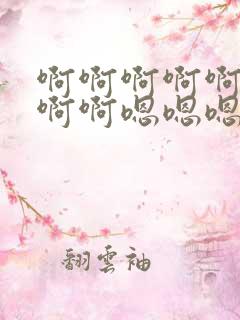 啊啊啊啊啊
啊啊嗯嗯嗯
翻雲袖